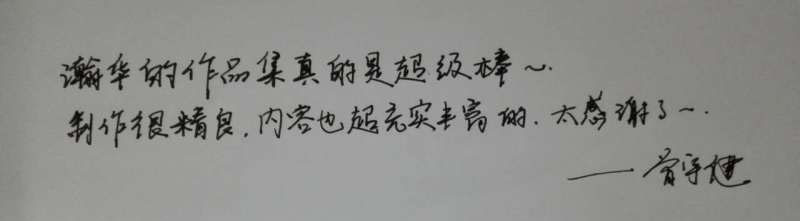 瀚华的作品集真的是超级棒~.
制作很精良,内容也超充实丰富的.太感谢了~.
——曾宇健